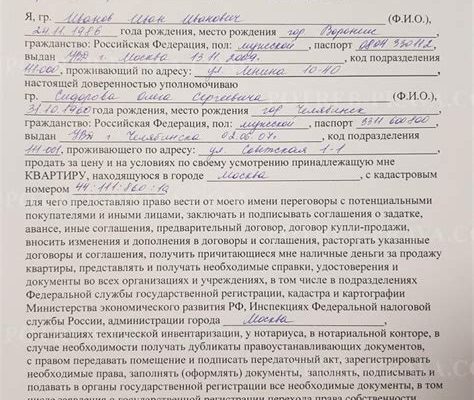 Я, гр. Иванов Иван Иванович (Ф.И.О.),
24.11.1986 года рождения, место рождения гор Воронеж,
гражданство: Российская Федерация, пол: мужской, паспорт 0804 330112,
выдан УВД г Москва 13 11 2009. код подразделения
411-001, проживающий по адресу: ул Ленина 10-40
настоящей доверенностью уполномочиваю
гр. Сидорова Ольга Сергеевича (Ф.И.О.),
31.10.1960 года рождения, место рождения гор Челябинск
гражданство: Российская Федерация, пол: мужской, паспорт 3311 600100
выдан УВД г Челябинска 02.06 07г. код подразделения
111-001. проживающего по адресу: ул Советская 1-1
продать за цену и на условиях по своему усмотрению принадлежащую мне
КВАРТИРУ, находящуюся в городе Москва, с кадастровым
номером 44:111:860:19
для чего предоставляю право вести от моего имени переговоры с потенциальными
покупателями и иными лицами, заключать и подписывать соглашения о задатке,
авансе, иные соглашения, предварительный договор, договор купли-продажи,
вносить изменения и дополнения в договоры и соглашения, расторгать указанные
договоры и соглашения, получить причитающиеся мне наличные деньги за продажу
квартиры, представлять и получать необходимые справки, удостоверения и
документы во всех организациях и учреждениях, в том числе в подразделениях
Федеральной службы государственной регистрации, кадастра и картографии
Министерства экономического развития РФ, Инспекциях Федеральной налоговой
службы России, администрации города Москва,
организациях технической инвентаризации, у нотариуса, в нотариальной конторе, в
случае необходимости получать дубликаты правоустанавливающих документов,
с правом передавать помещение и подписать передаточный акт, зарегистрировать
необходимые права, заполнять (оформлять) документы, заполнять, подписывать и
подавать в органы государственной регистрации все необходимые документы, в том
числе заявления о государственной регистрации перехода права собственности